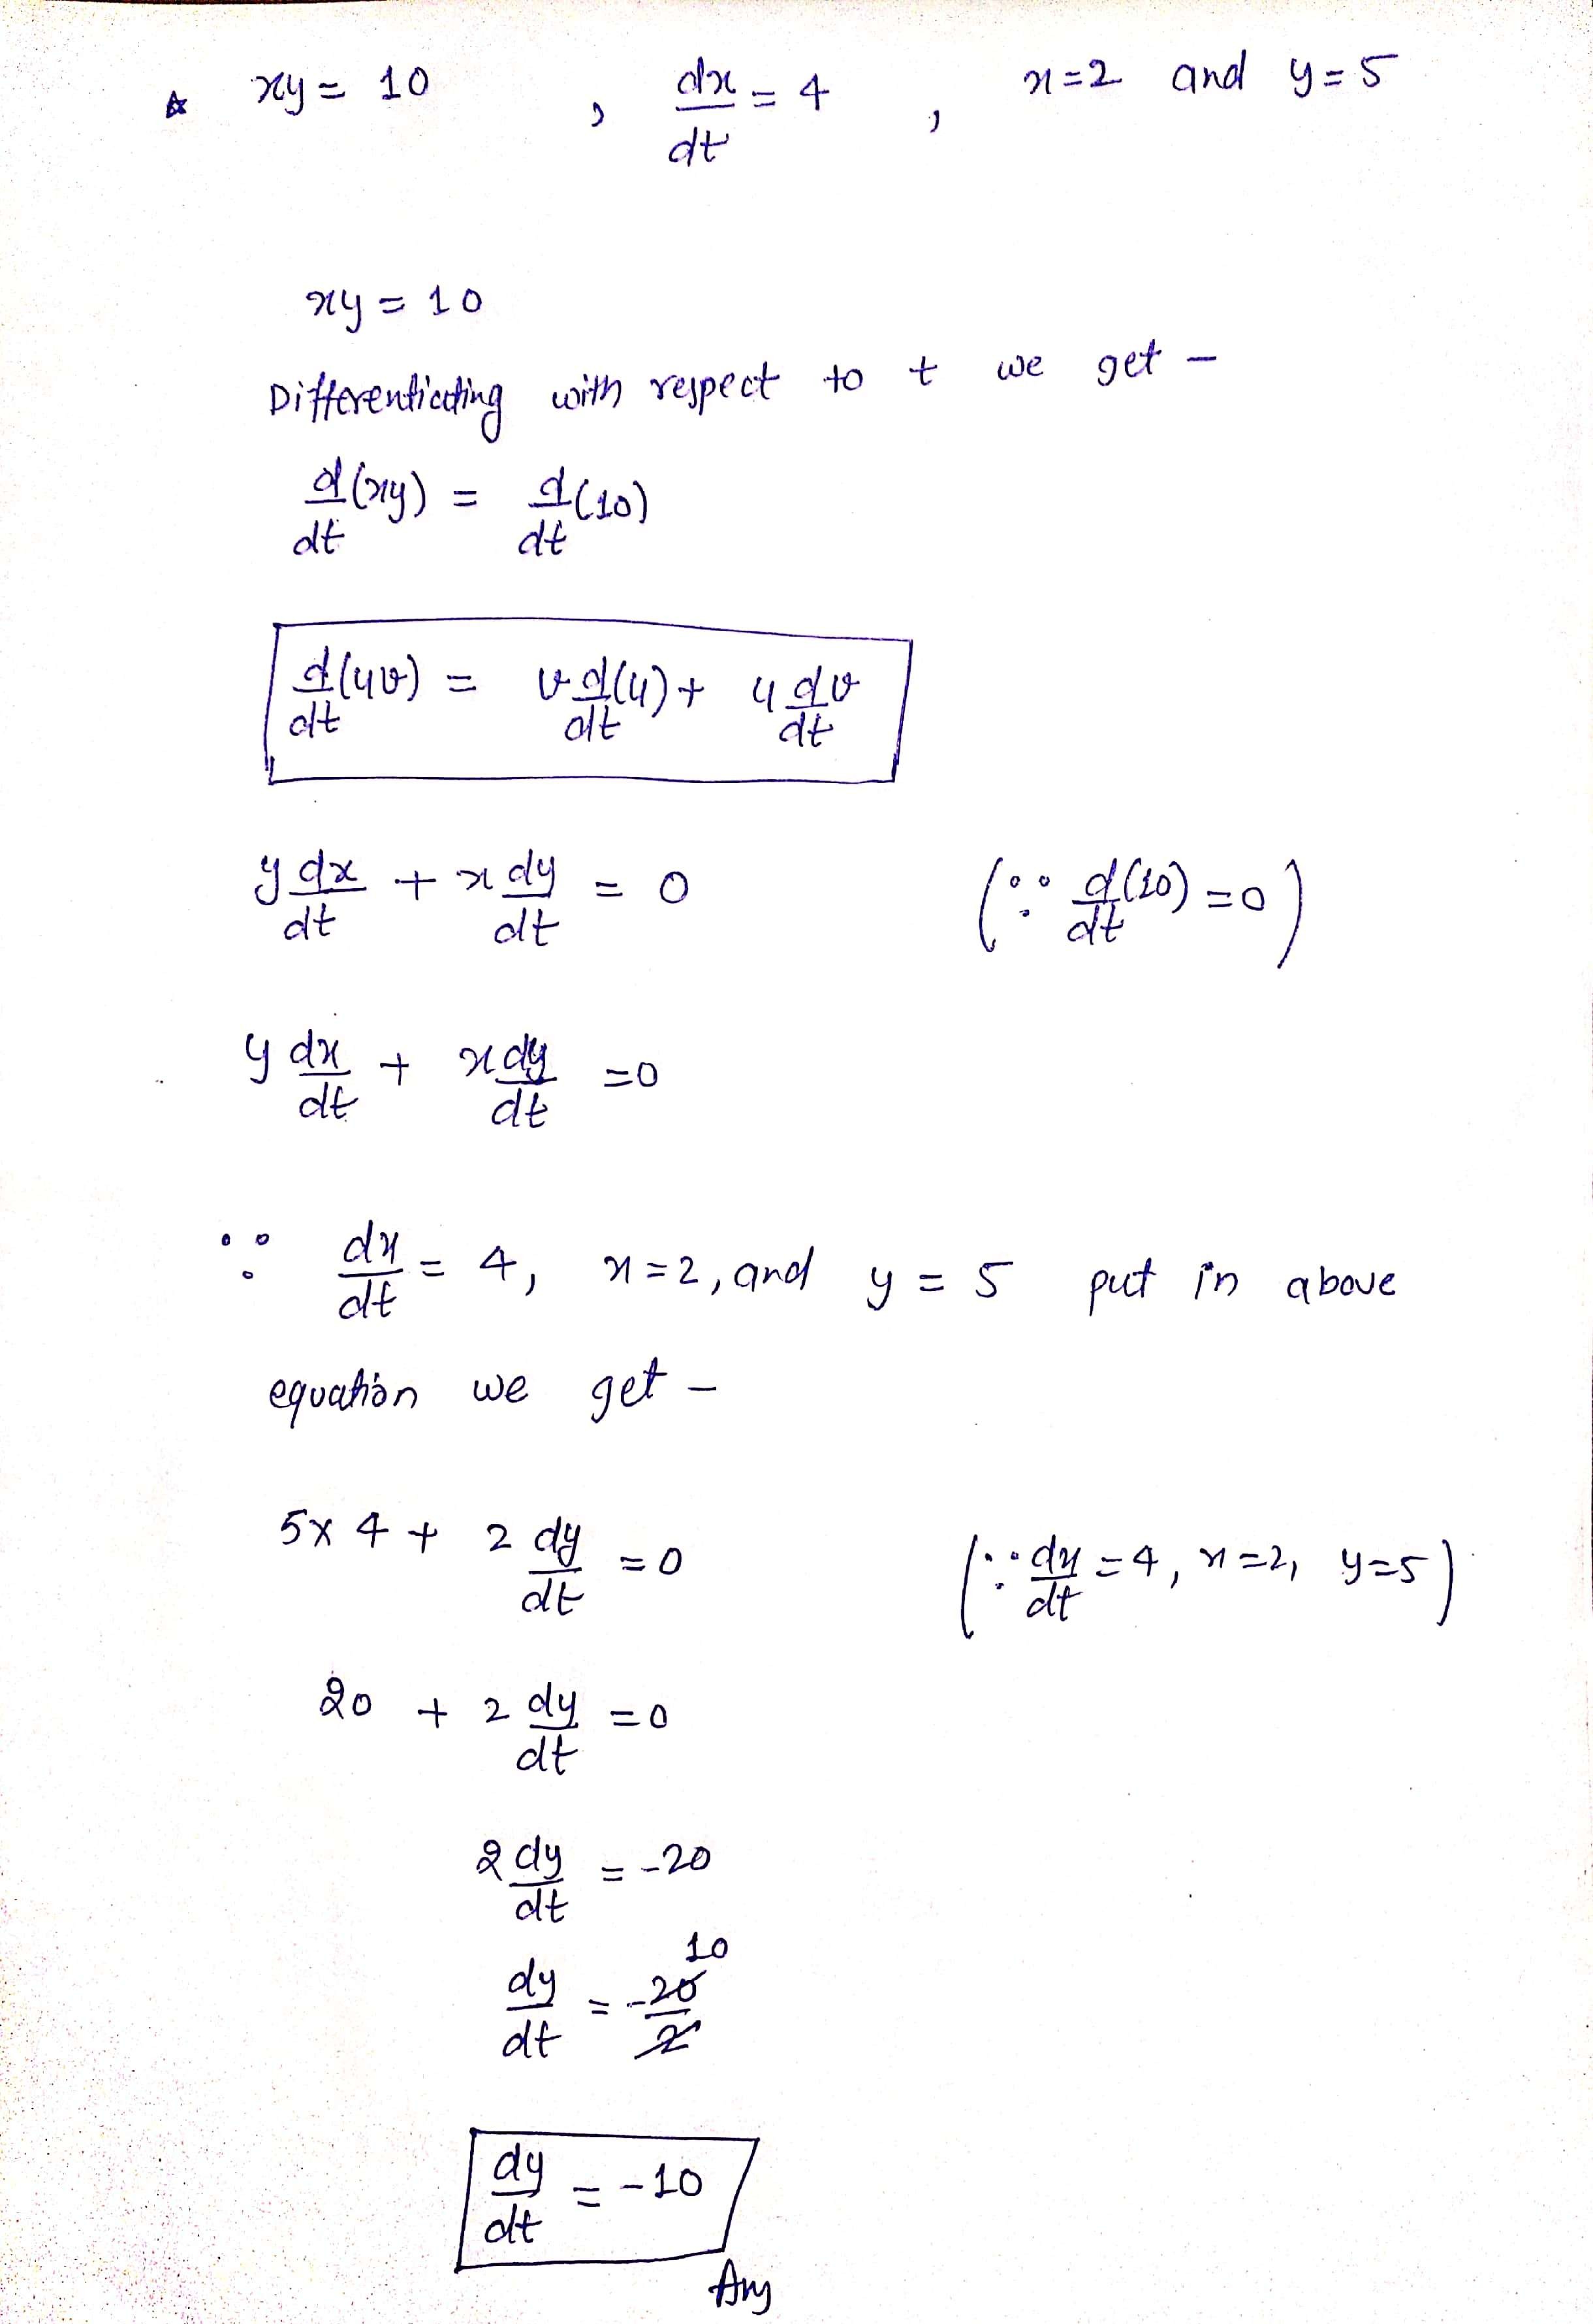 ☆ xy = 10 , dx/dt = 4 , x=2 and y=5
xy = 10
Differentiating with respect to t we get –
d/dt (xy) = d/dt (10)
d/dt (uv) = v d/dt (u) + u dv/dt
y dx/dt + x dy/dt = 0 (∵ d/dt (10) = 0)
y dx/dt + x dy/dt = 0
∵ dx/dt = 4, x=2, and y = 5 put in above
equation we get –
5x4 + 2 dy/dt = 0 (∵ dx/dt = 4, x=2, y=5)
20 + 2 dy/dt = 0
2 dy/dt = -20
10
dy/dt = -20/2
dy/dt = -10
Ans